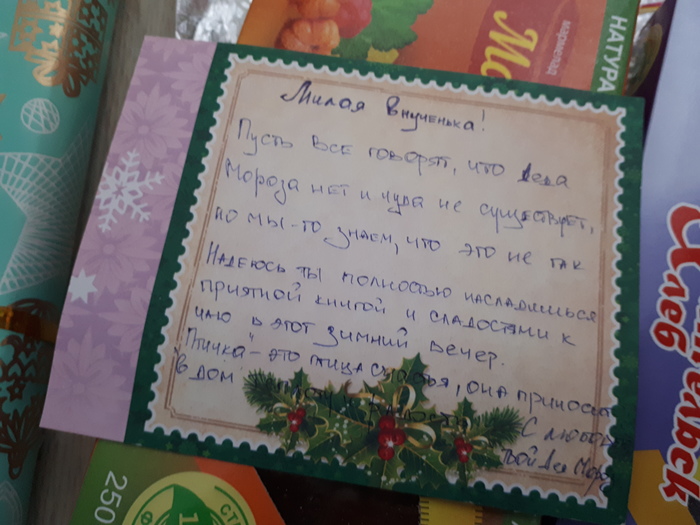 Милая Внученька!
Пусть все говорят, что Деда
Мороза нет и чуда не существует,
но мы-то знаем, что это не так
Надеюсь ты полностью насладишься
приятной книгой и сладостями к
чаю в этот зимний вечер.
"Птичка" - это птица счастья, она приносит
в дом и радость
С любовью
твой Дед Мороз
НАТУРА
мармелад
Ма
Хлеб
250